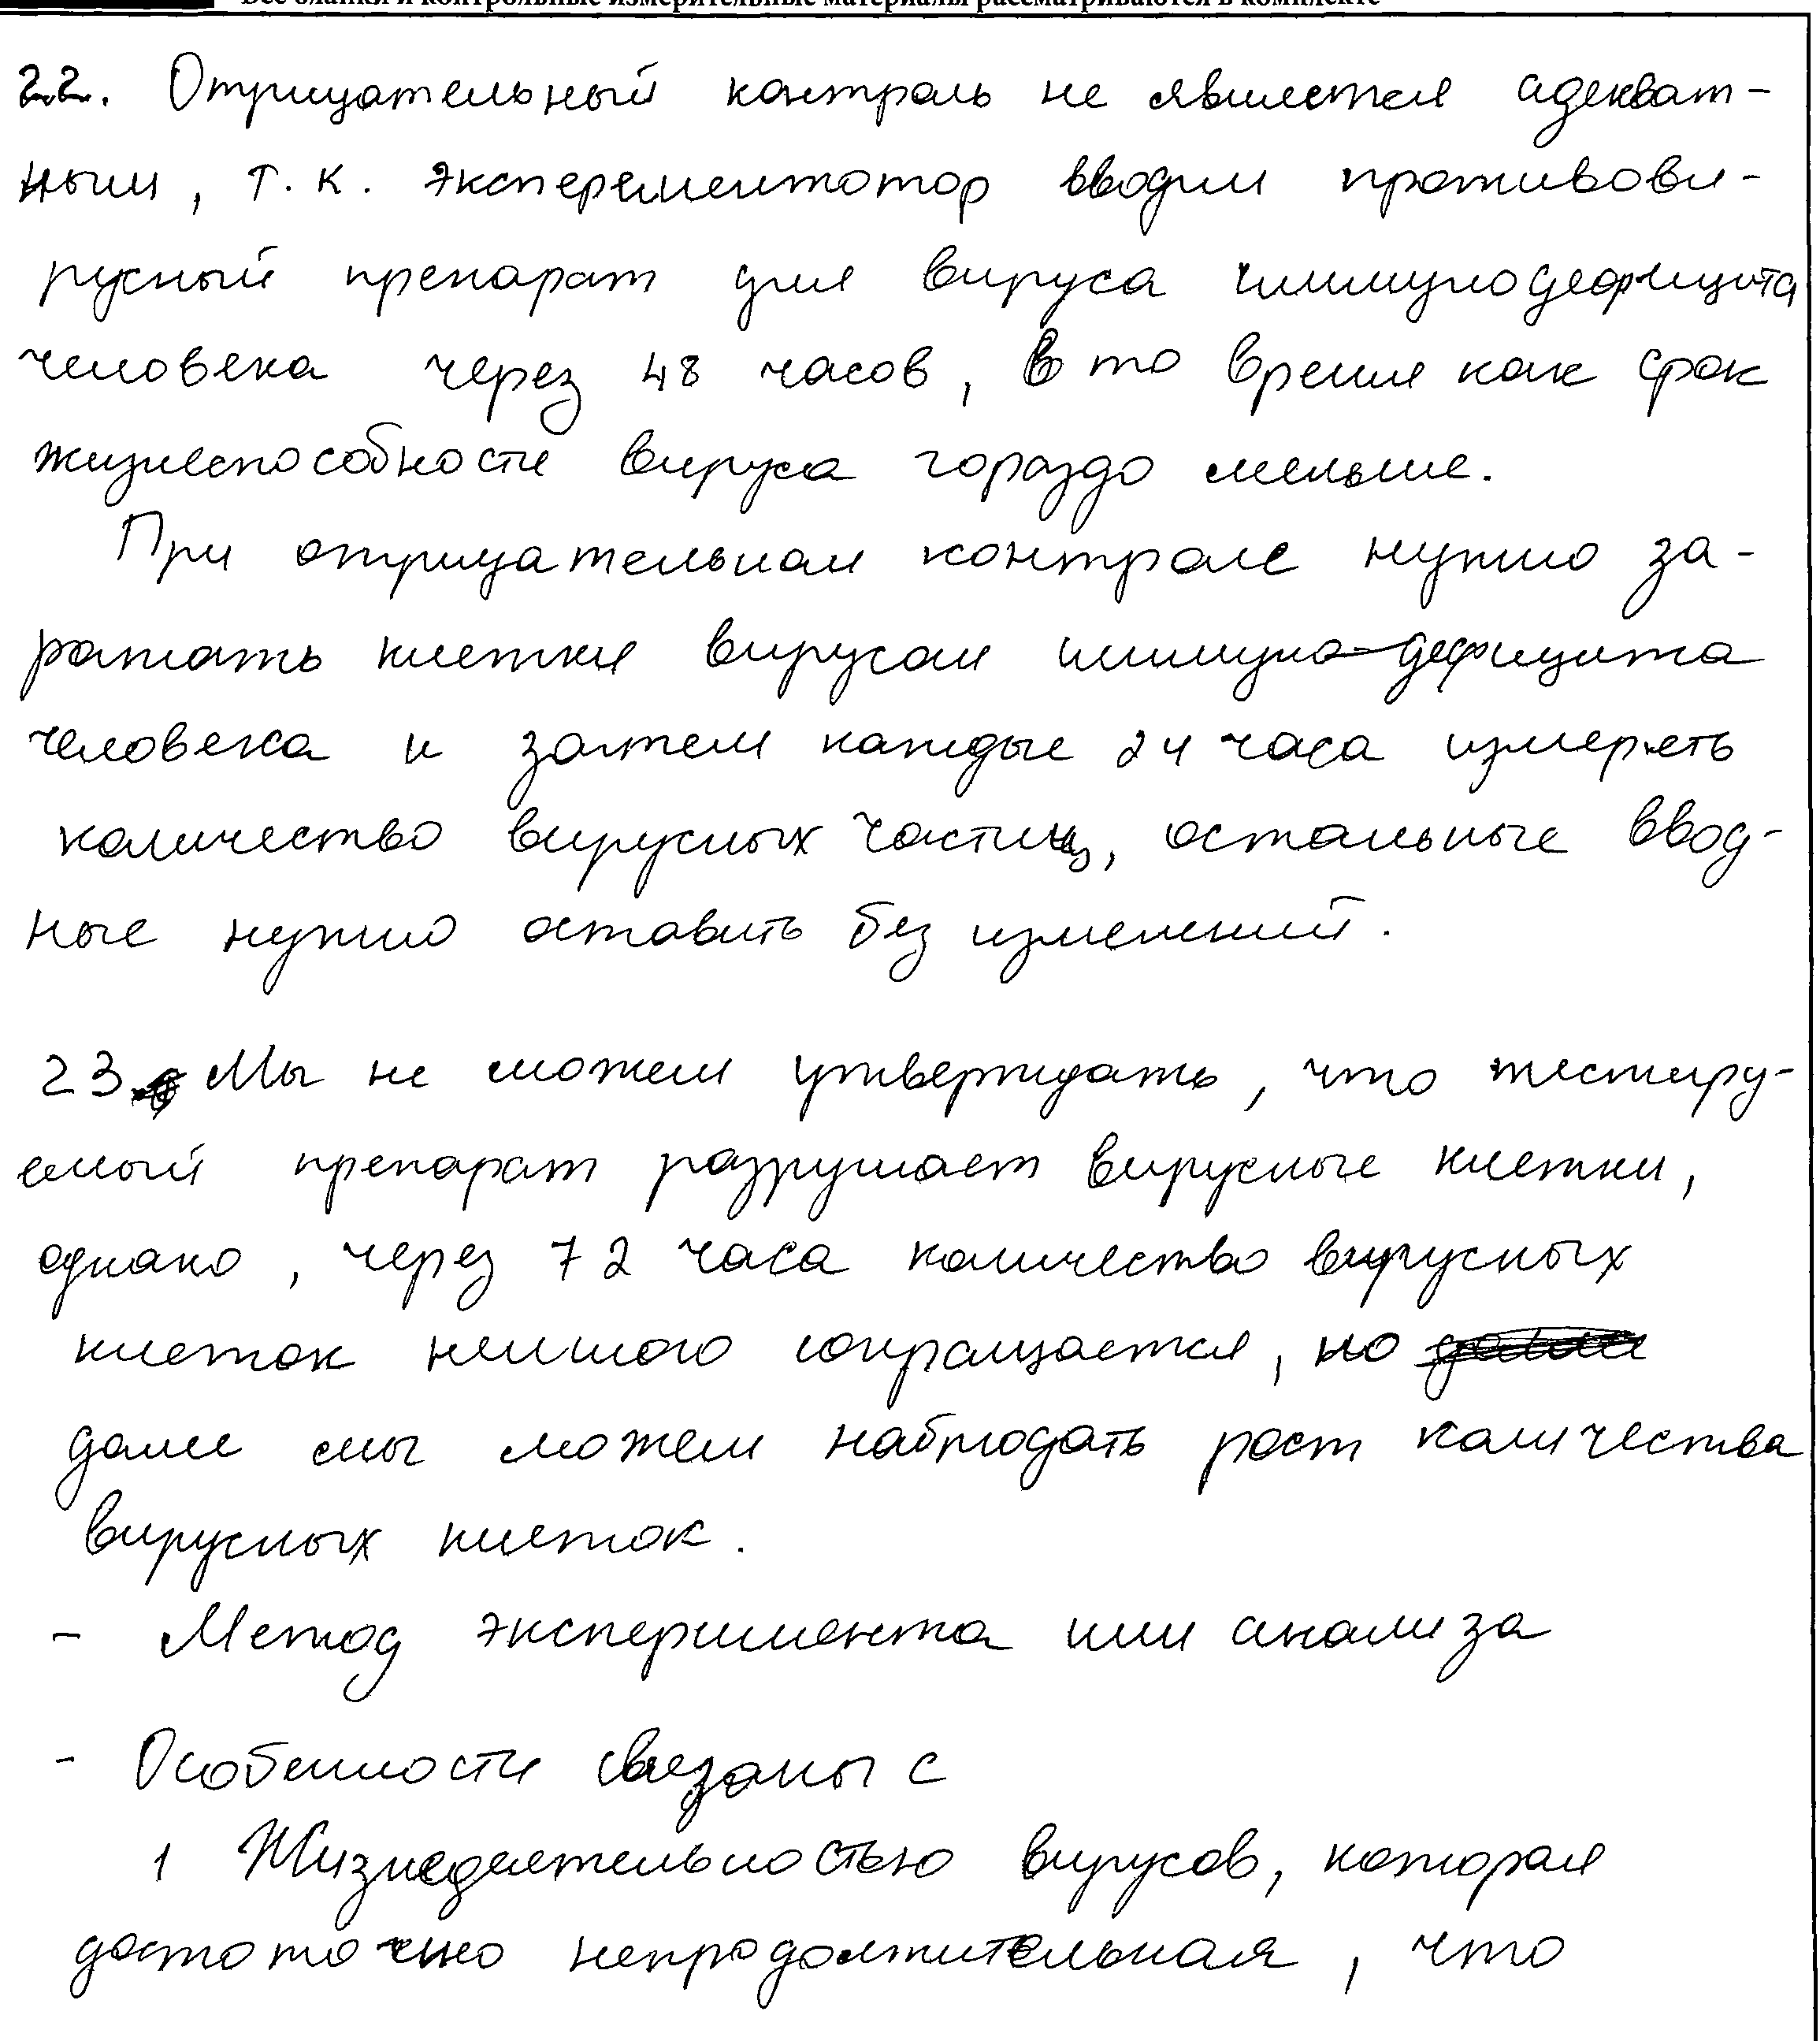 Все бланки и контрольные измерительные материалы рассматриваются в комплекте
22. Отрицательный контроль не является адекват-
ным, т.к. эксперементотор вводим противови-
русный препарат для вируса иммунодефицита
человека через 48 часов, в то время как срок
жизнеспособности вируса гораздо меньше.
При отрицательном контроле нужно за-
ражать клетки вирусом иммуно-дефицита
человека и затем каждые 24 часа измерять
количество вирусных частиц, остальные ввод-
ные нужно оставить без изменений.
23. Мы не можем утверждать, что тестиру-
емый препарат разрушает вирусные клетки,
однако, через 72 часа количество вирусных
клеток немного сокращается, но
далее мы можем наблюдать рост количества
вирусных клеток.
- Метод эксперимента или анализа
- Особенности связаны с
1 Жизнедеятельностью вирусов, которая
достоточно непродолжительная, что